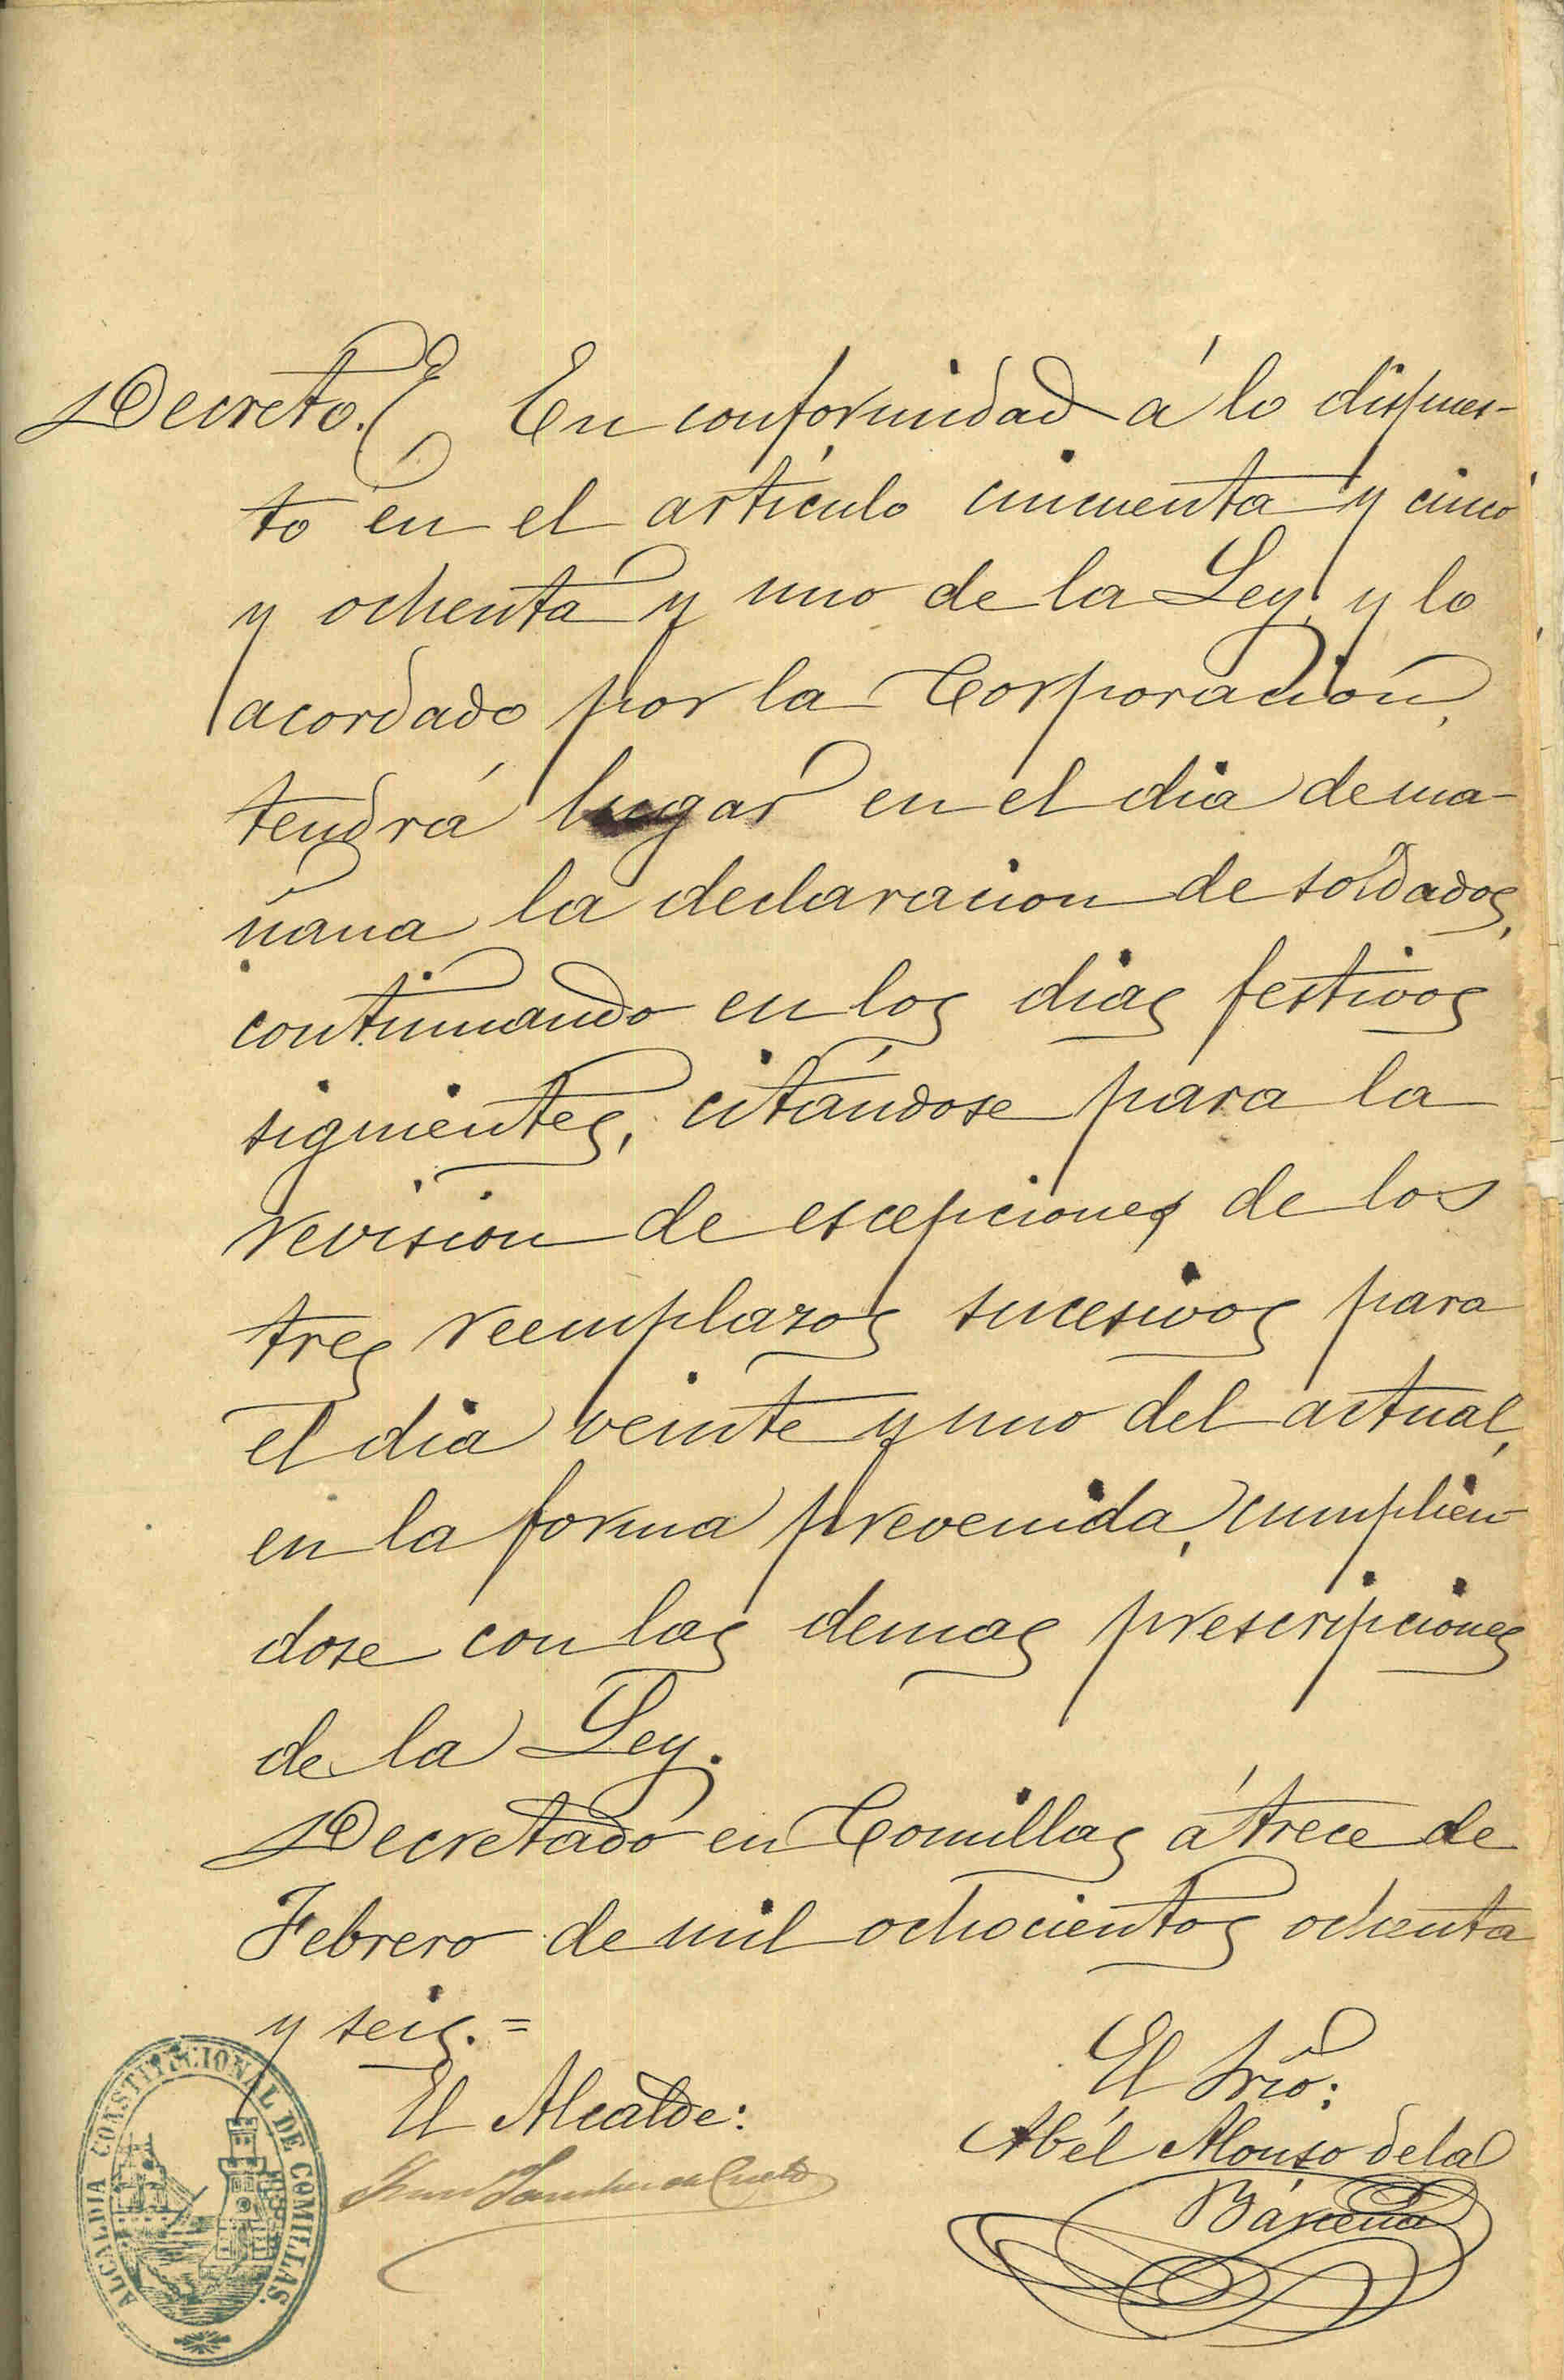 Decreto. En conformidad á lo dispues-
to en el artículo cincuenta y cinco
y ochenta y uno de la Ley, y lo
acordado por la Corporación,
tendrá lugar en el dia de ma-
ñana la declaracion de soldados,
continuando en los dias festivos
siguientes, citándose para la
revision de escepciones de los
tres reemplazos sucesivos para
el dia veinte y uno del actual,
en la forma prevenida, cumplién-
dose con las demas prescripciones
de la Ley.
Decretado en Comillas á trece de
Febrero de mil ochocientos ochenta
y seis.=
El Alcalde:
El Srio:
Abél Alonso de la
Bárcena
ALCALDIA CONSTITUCIONAL DE COMILLAS.